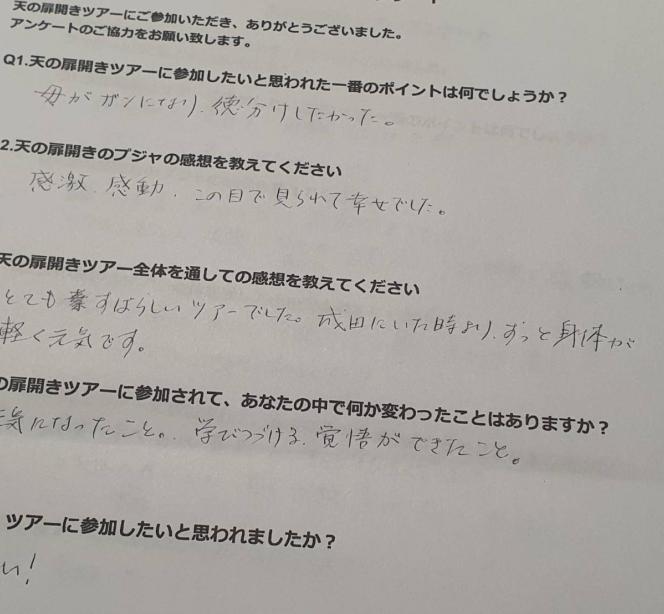 天の扉開きツアーにご参加いただき、ありがとうございました。
アンケートのご協力をお願い致します。
Q1.天の扉開きツアーに参加したいと思われた一番のポイントは何でしょうか？
母がガンになり、徳分けしたかった。
2.天の扉開きのプジャの感想を教えてください
感激、感動、この目で見られて幸せでした。
天の扉開きツアー全体を通しての感想を教えてください
とても すばらしいツアーでした。成田にいた時より、ずっと身体が
軽く元気です。
の扉開きツアーに参加されて、あなたの中で何か変わったことはありますか？
気になったこと。学びつづける、覚悟ができたこと。
ツアーに参加したいと思われましたか？
い！